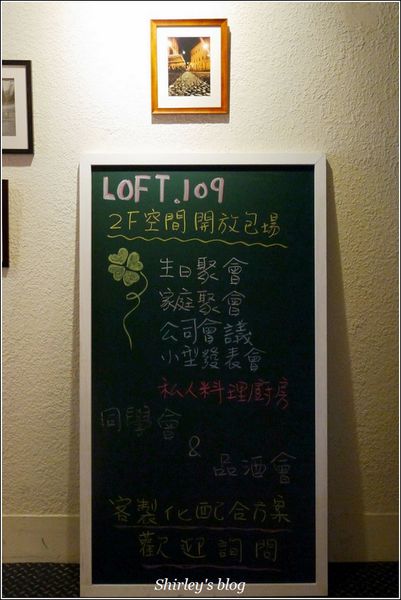 LOFT.109
2F空間開放包場
生日聚會
家庭聚會
公司會議
小型發表會
私人料理廚房
同學會
&
品酒會
客製化配合方案
歡迎詢問
Shirley's blog